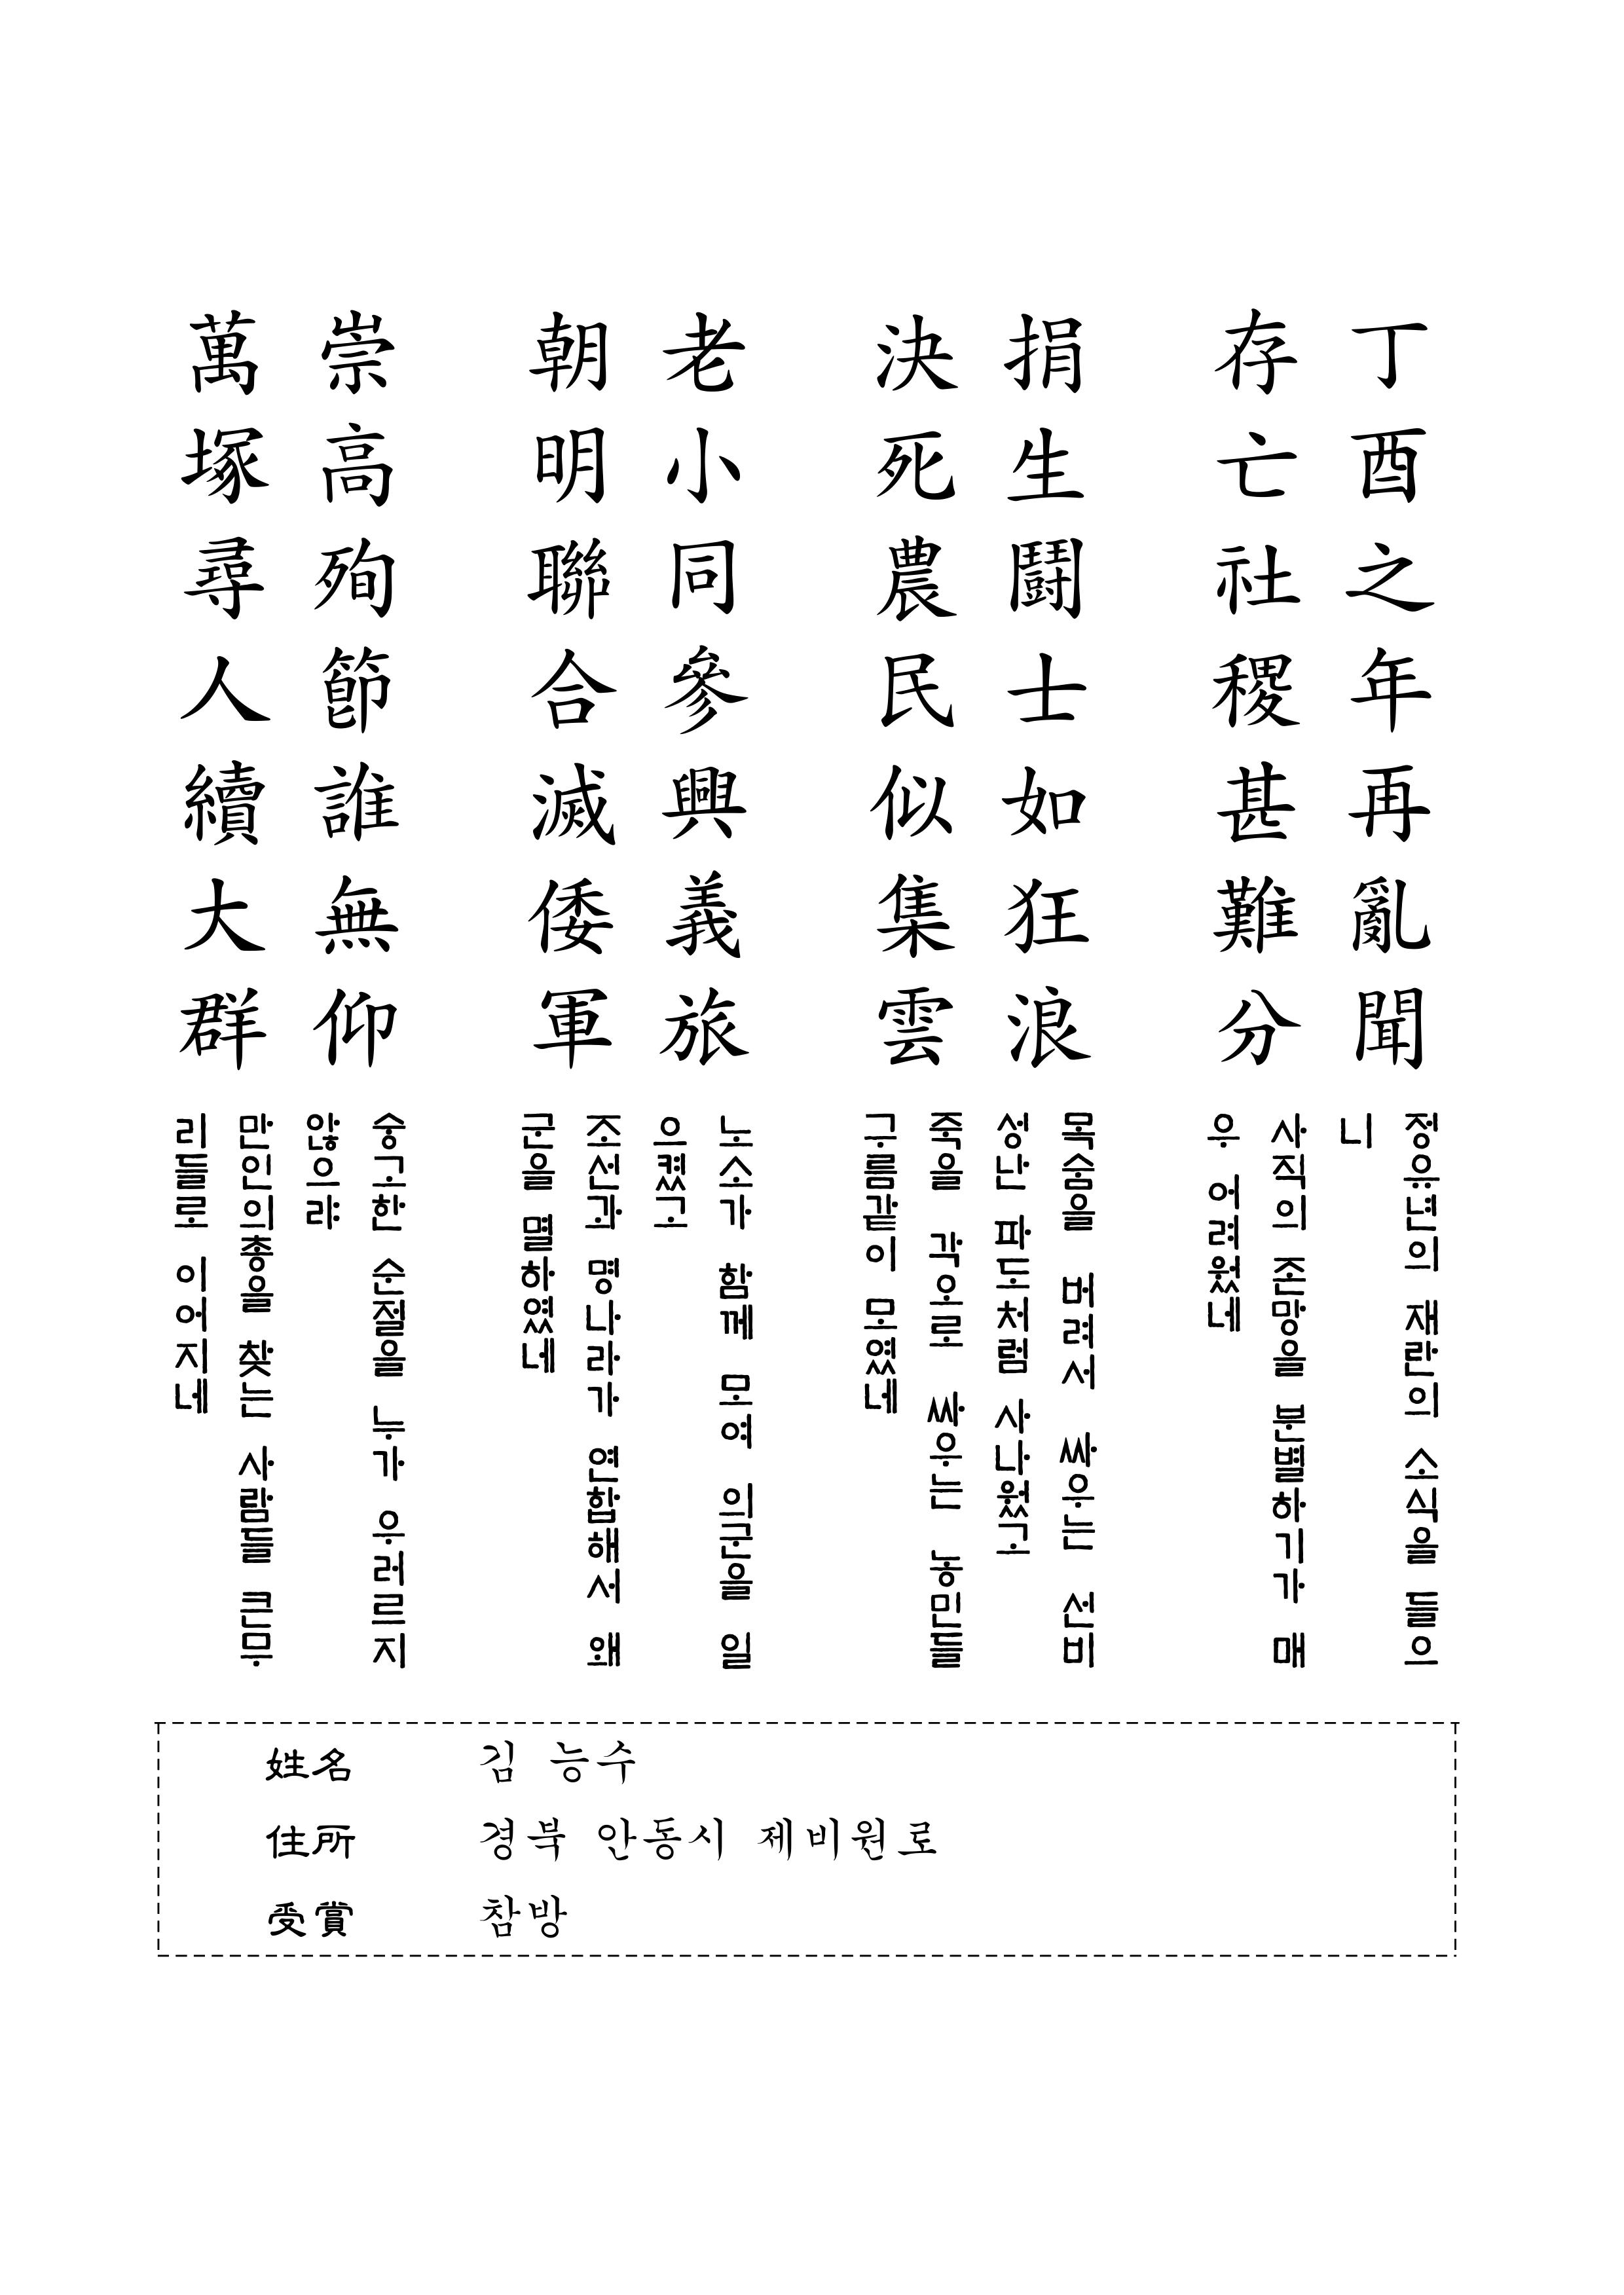 丁酉之年再亂聞
存亡社稷甚難分
捐生鬪士如狂浪
決死農民似集雲
老小同參興義旅
朝明聯合滅倭軍
崇高殉節誰無仰
萬塚尋人續大群
정유년의 재란의 소식을 들으
니
사직의 존망을 분별하기가 매
우 어려웠네
목숨을 버려서 싸우는 선비
성난 파도처럼 사나웠고
죽을 각오로 싸우는 농민들
구름같이 모였네
노소가 함께 모여 의군을 일
으켰고
조선과 명나라가 연합해서 왜
군을 멸하였네
숭고한 순절을 누가 우러르지
않으랴
만인의총을 찾는 사람들 큰무
리들로 이어지네
姓名 김 능수
住所 경북 안동시 제비원로
受賞 참방